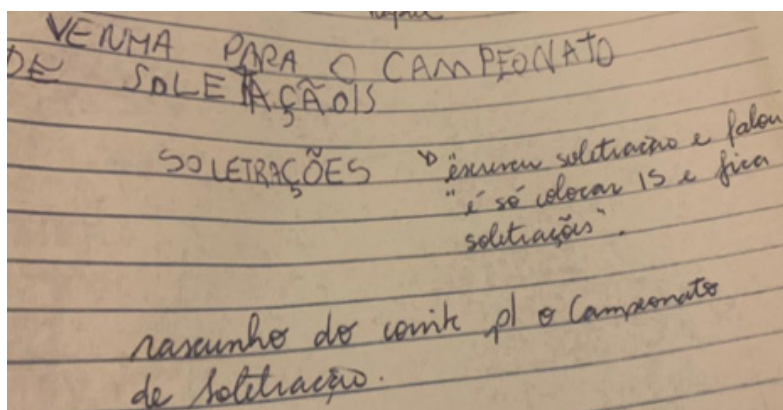 VENMA PARA O CAMPEONATO
DE SOLETAÇÃOIS
SOLETRAÇÕES
"escreveu soletração e falou
"é só colocar IS e fica
soletrações".
rascunho do convite p/ o Campeonato
de Soletração.